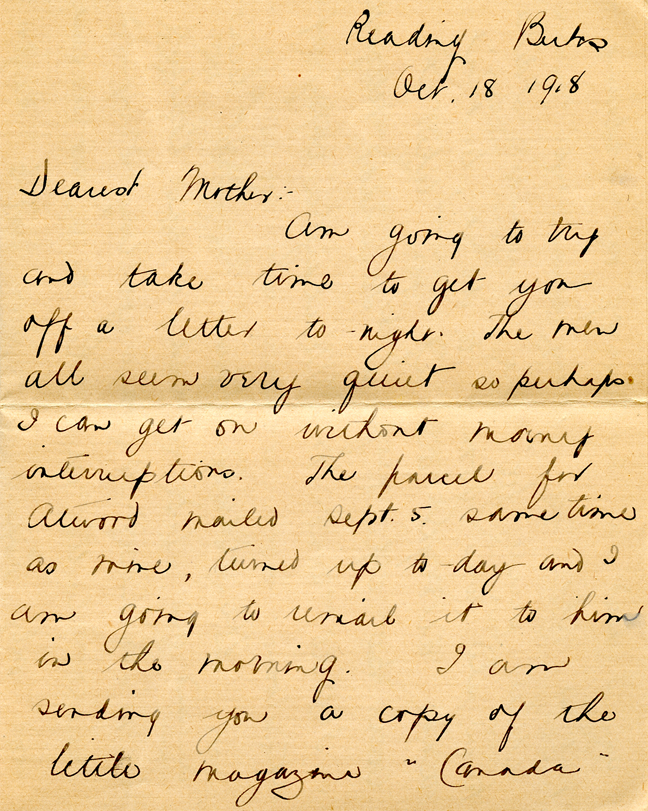 Reading Berks
Oct. 18 1918
Dearest Mother:-
Am going to try
and take time to get you
off a letter to-night. The men
all seem very quiet so perhaps
I can get on without many
interruptions. The parcel for
Atwood mailed Sept. 5. same time
as mine, turned up to-day and I
am going to remail it to him
in the morning. I am
sending you a copy of the
little magazine "Canada"